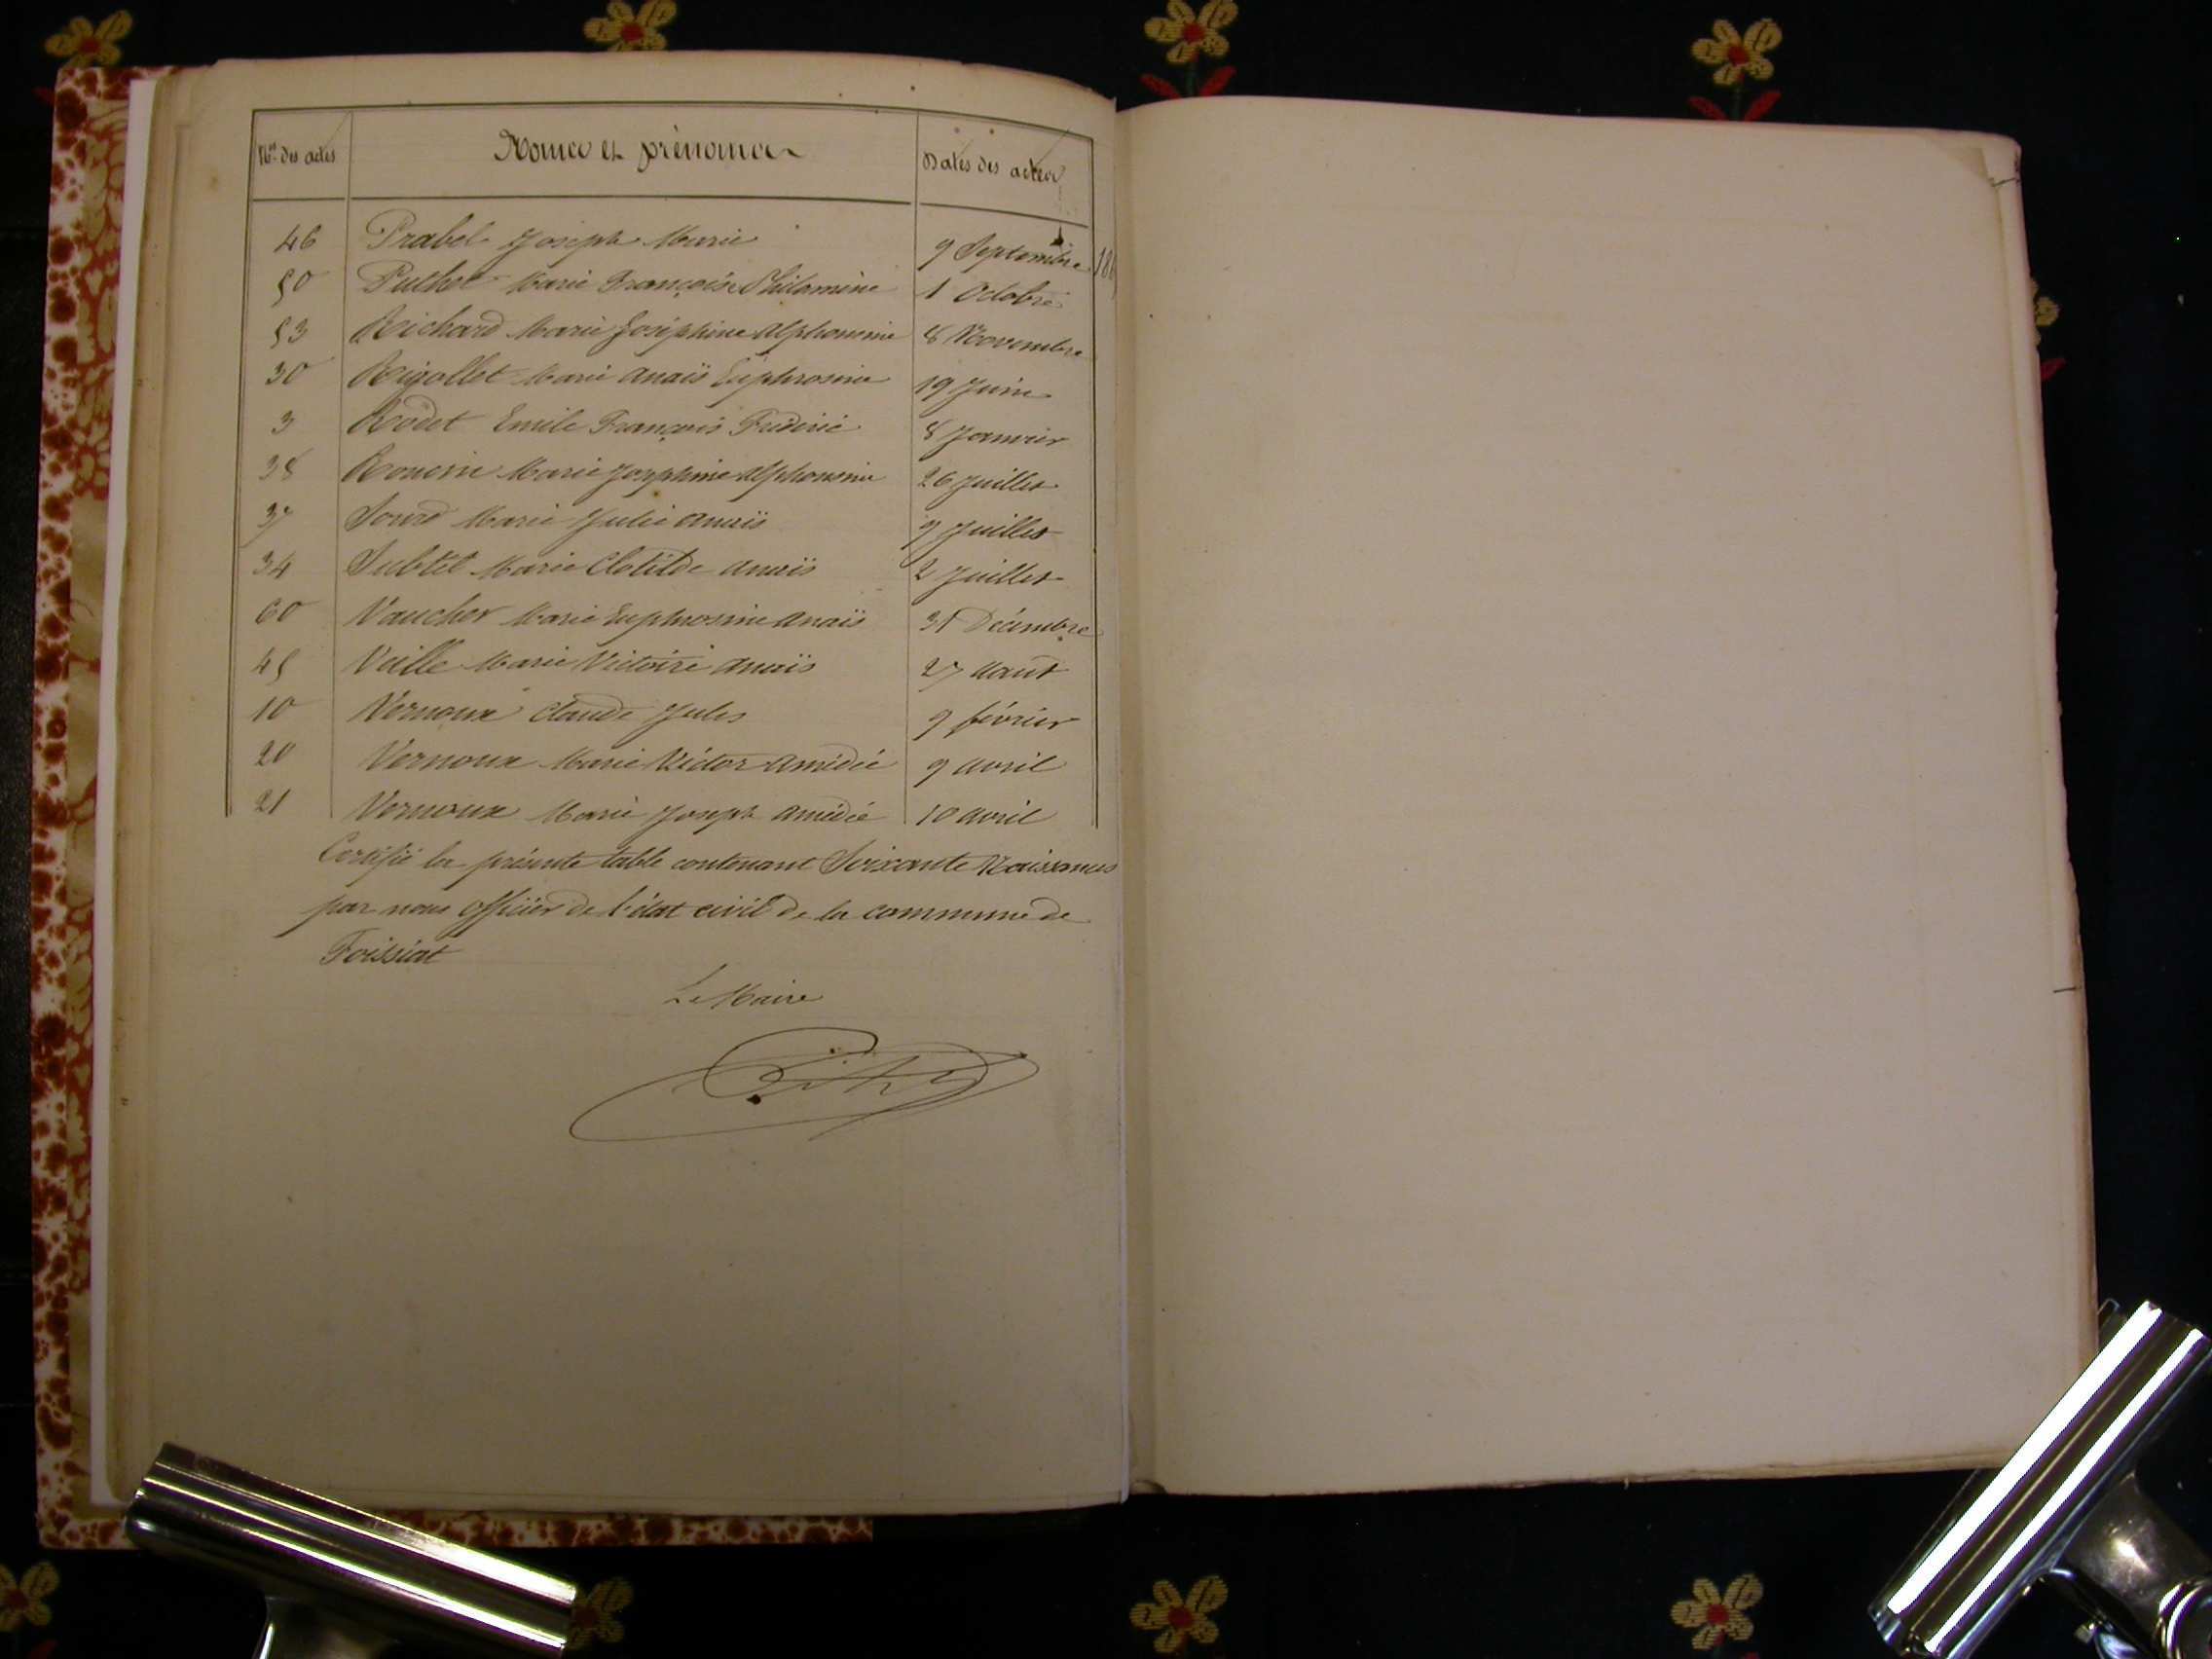 Nos des actes Noms et prénoms Dates des actes
46 Prabel Joseph Marie 9 Septembre 186
50 Puthet Marie Françoise Philomène 1 Octobre
53 Richard Marie Joséphine Alphonsine 8 Novembre
30 Rigollet Marie Anaïs Euphrosine 19 Juin
3 Rodet Emile François Frédéric 8 Janvier
38 Marie Joséphine Alphonsine 26 Juillet
37 Sourd Marie Julie Anaïs 9 Juillet
34 Subtil Marie Clotilde Anaïs 2 Juillet
60 Vaucher Marie Euphrosine Anaïs 31 Décembre
45 Veille Marie Victoire Anaïs 27 Août
10 Vernoux Claude Jules 9 février
20 Vernoux Marie Victor Amédée 9 avril
21 Vernoux Marie Joseph Amédée 10 avril
Certifié la présente table contenant Soixante Naissances
par nous officier de l'état civil de la commune de
Foissiat
Le Maire